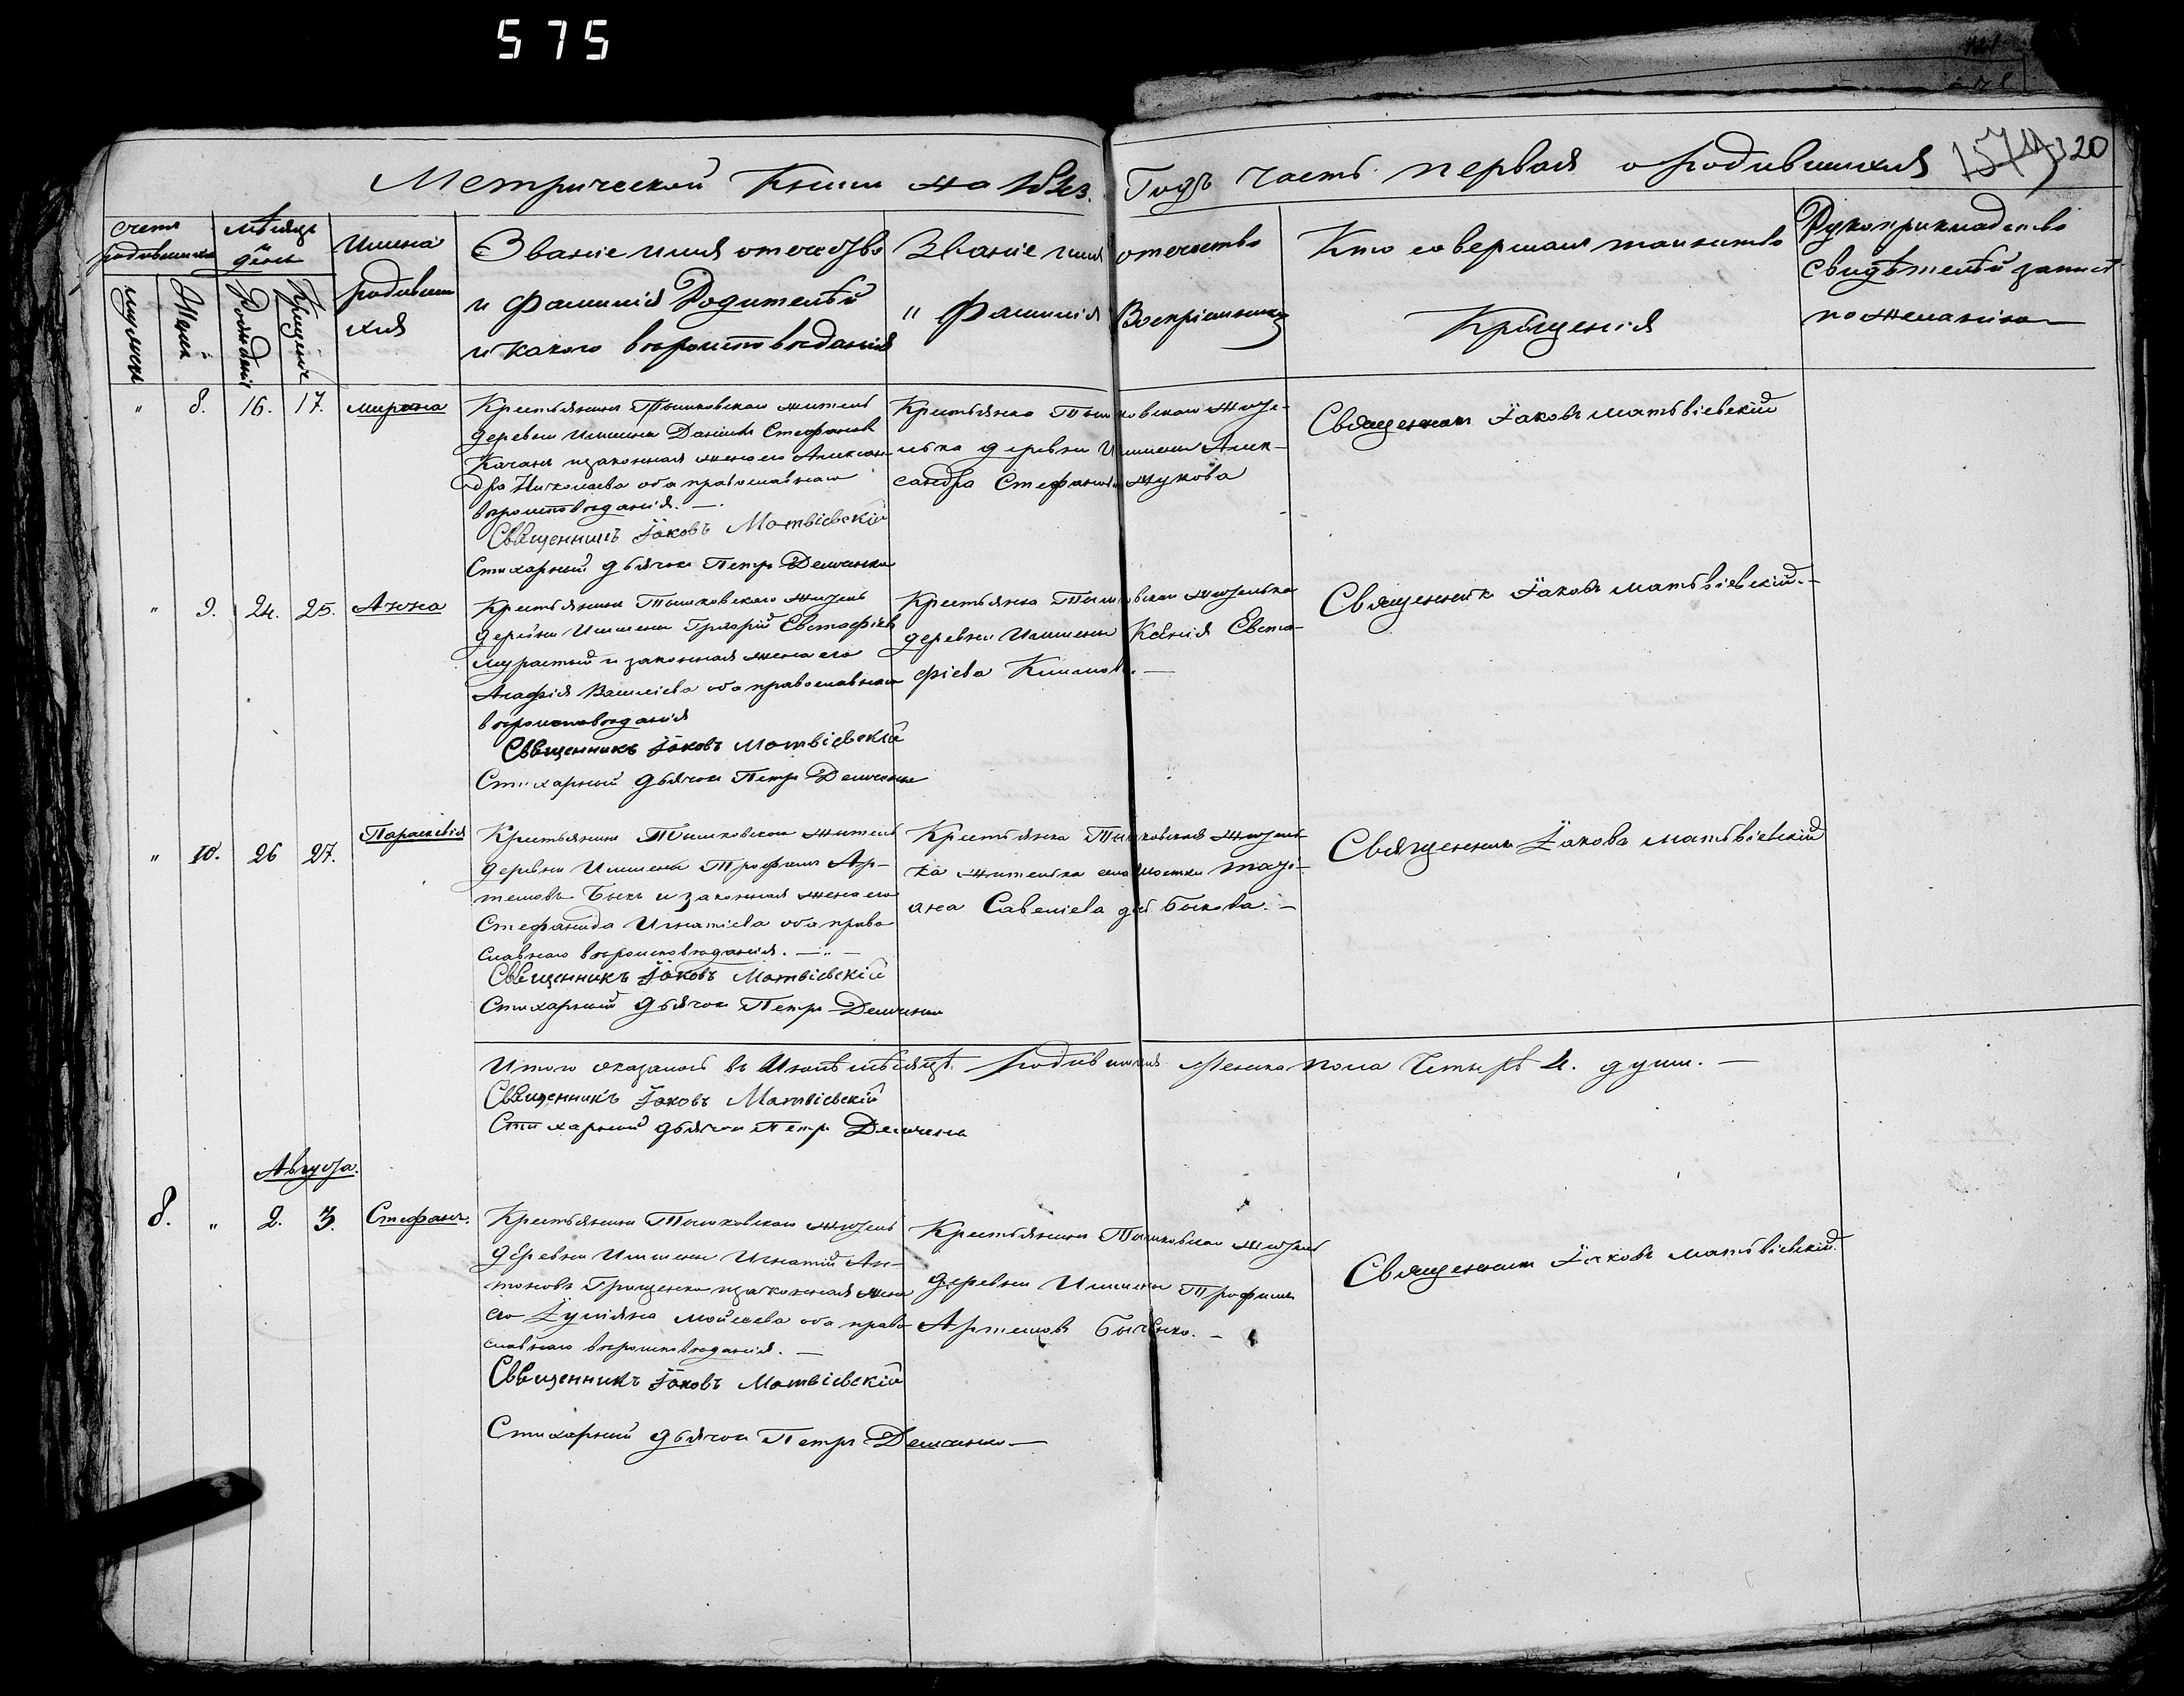 575
Метрической Книги на 1843. Годъ часть первая о родившихся 320
счетъ родившихся
мѣсяцъ и день
Имена родившихся
Званіе имя отечество и фамилія Родителей и какого вѣроисповѣданія
Званіе имя отечество и Фамилія Воспріемниковъ
Кто совершалъ таинство Крещенія
Рукоприкладство свидѣтелей записи по желанію
мужеска
Женска
Рожденія
Крещенія
" 8. 16. 17. Мирона
Крестьянинъ Тышковскаго житель
деревни Ишшены Даніилъ Стефановъ
Качанъ и законная жена его Алексан-
дра Николаева оба православнаго
вѣроисповѣданія. —
Священникъ Іаковъ Матвіевскій
Стихарный дьячокъ Петръ
Крестьянка жите-
лька деревни Алек-
сандра Стефанова Жукова
Священникъ Іаковъ Матвіевскій
" 9. 24. 25. Анна
Крестьянинъ Тышковскаго житель
деревни Ишшены Григорій Евстафіевъ
и законная жена его
Агафія Василіева оба православнаго
вѣроисповѣданія
Священникъ Іаковъ Матвіевскій
Стихарный дьячокъ Петръ
Крестьянка жителька
деревни Ишшены Ксенія Евста-
фіева
Священникъ Іаковъ Матвіевскій. —
" 10. 26 27. Параскевія
Крестьянинъ Тышковскаго житель
деревни Ишшены Трофимъ Ар-
темовъ Быкъ и законная жена его
Стефанида Игнатіева оба право
славнаго вѣроисповѣданія. —
Священникъ Іаковъ Матвіевскій
Стихарный дьячокъ Петръ
Крестьянка житель-
ка жителька Таті-
ана Савеліева Быкова. —
Священникъ Іаковъ Матвіевскій
Итого оказалось въ Іюлѣ мѣсяцѣ родившихся Женска пола Четырѣ 4. душъ. —
Священникъ Іаковъ Матвіевскій
Стихарный дьячокъ Петръ
Августа.
8. " 2. 3. Стефанъ.
Крестьянинъ Тышковскаго житель
деревни Ишшены Игнатій Ан-
тоновъ Грищенко и законная жена
его Іуліяна Мойсеева оба право
славнаго вѣроисповѣданія. —
Священникъ Іаковъ Матвіевскій
Стихарный дьячокъ Петръ
Крестьянинъ Тышковскаго житель
деревни Ишшены Трофимъ
Артемовъ Быченко. —
Священникъ Іаковъ Матвіевскій.